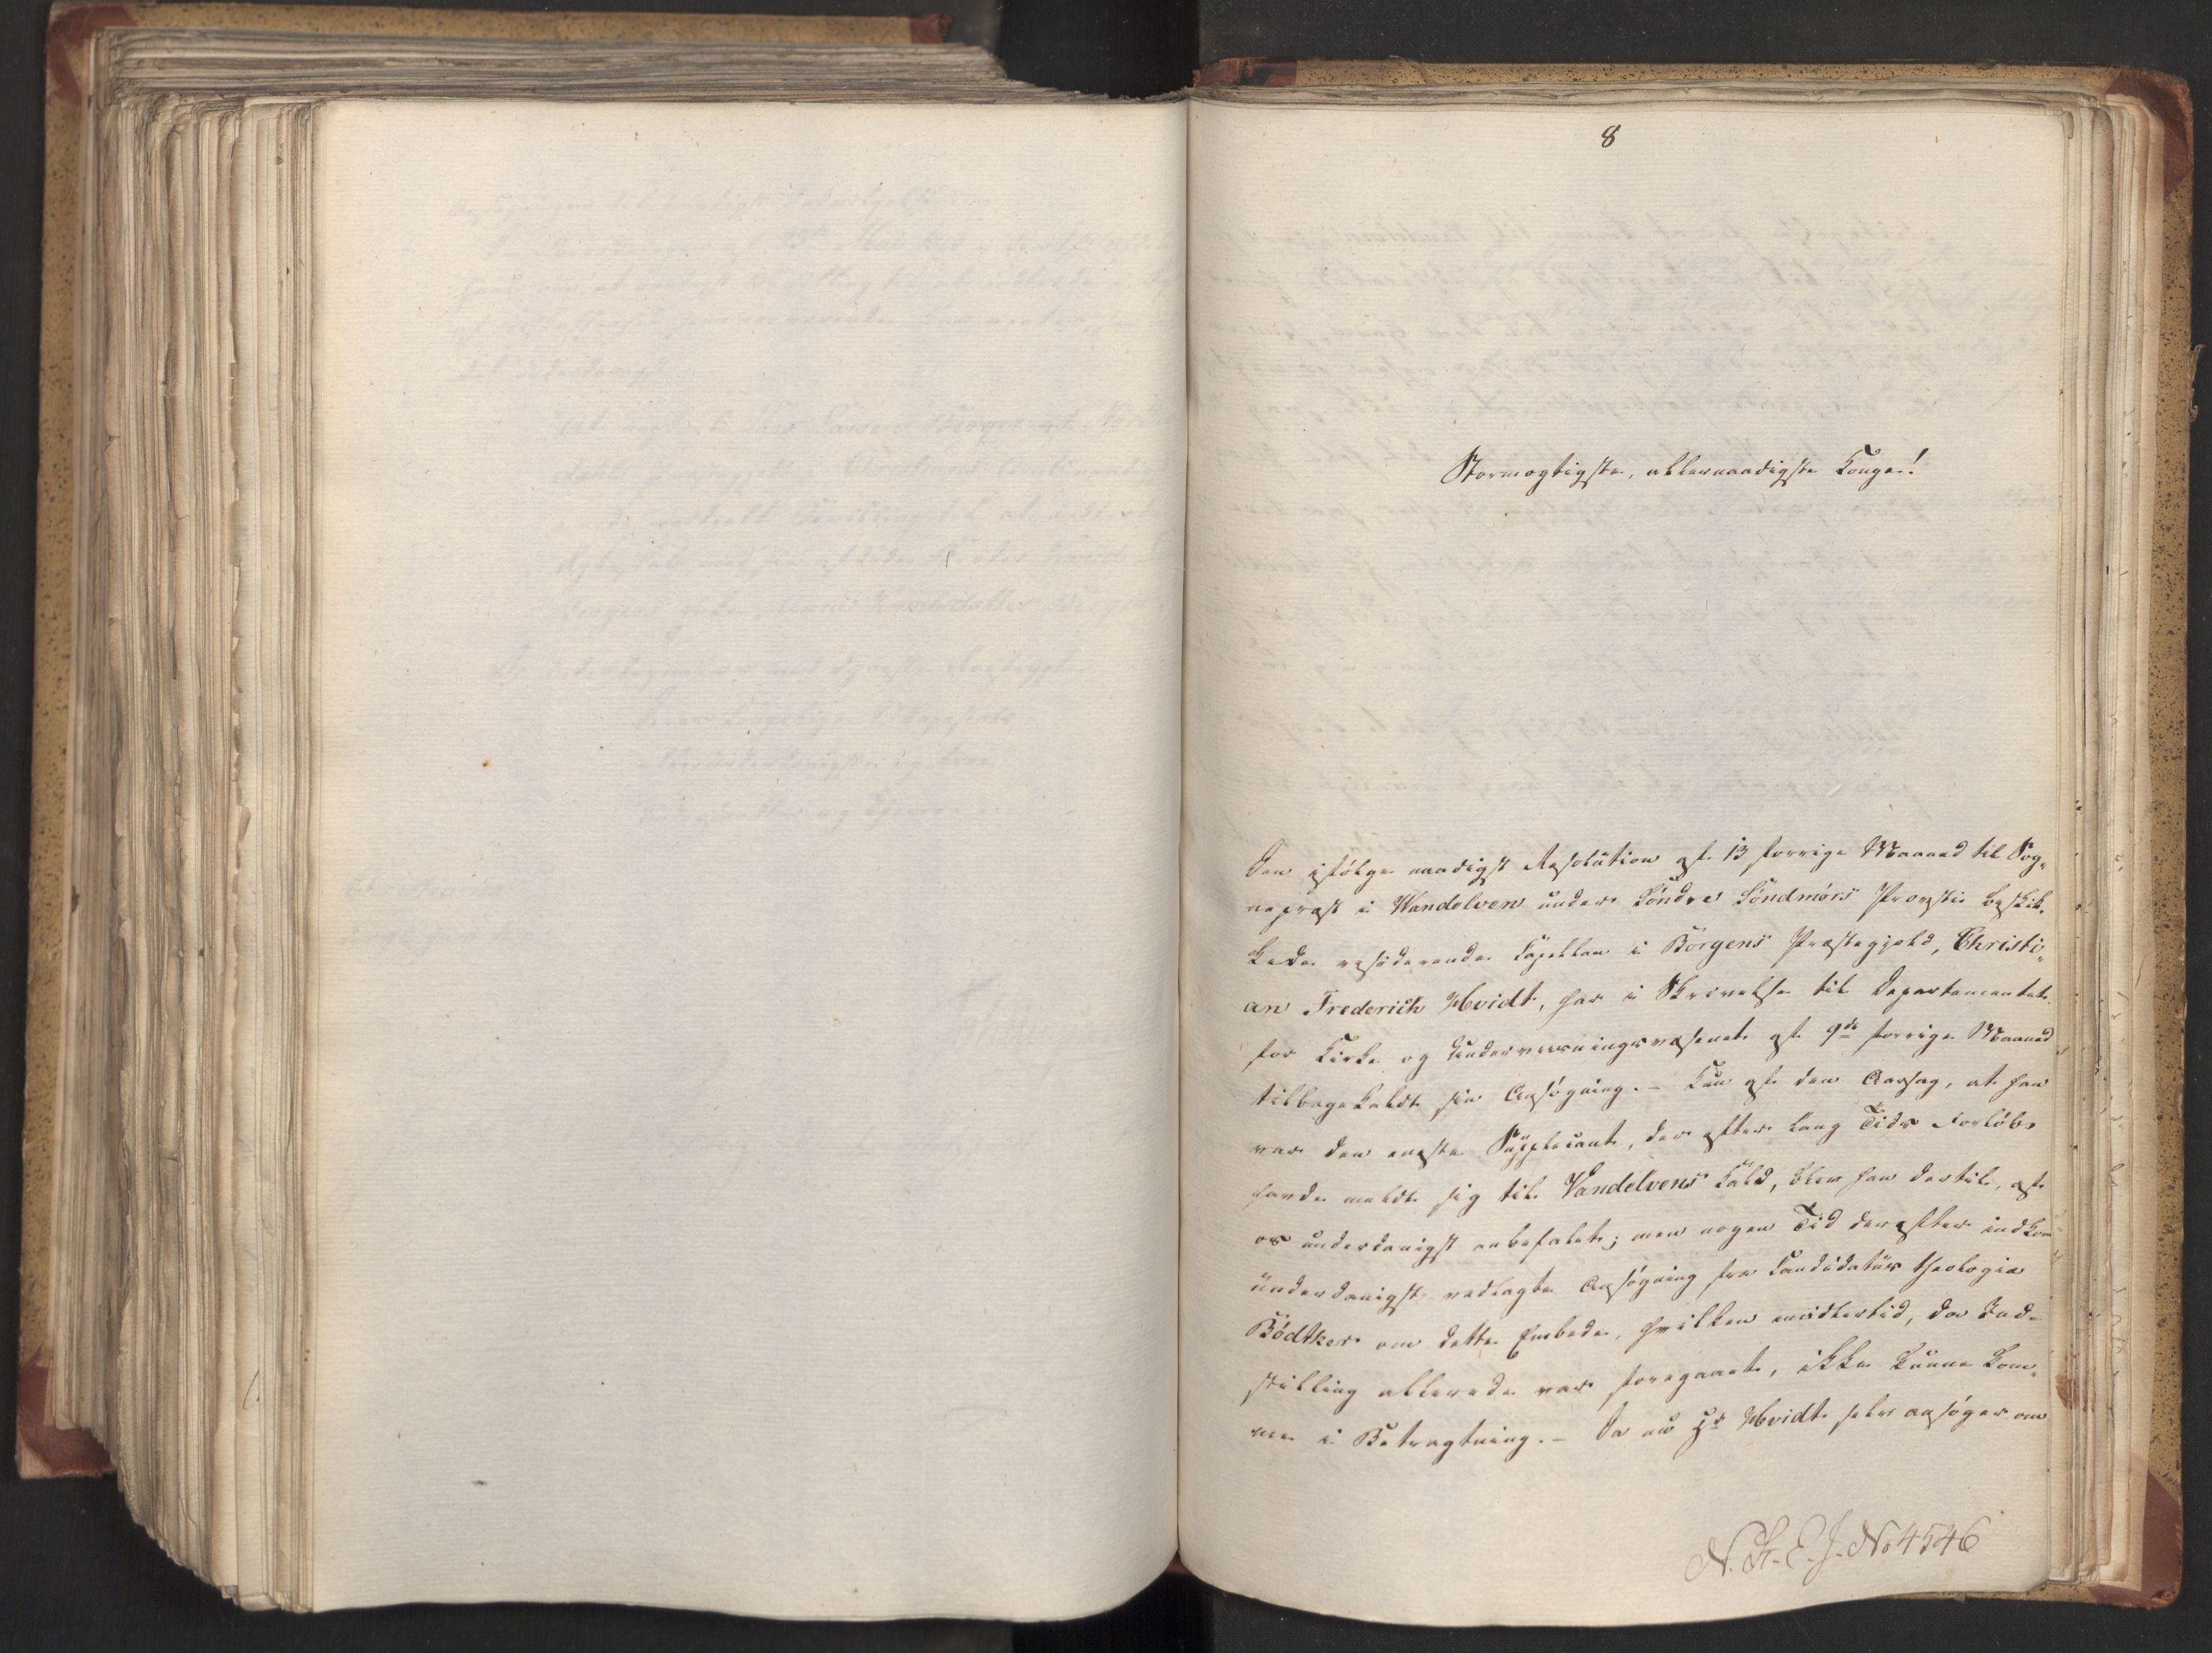 8
Stormægtigste, allernaadigste Konge!
Den ifølge naadigst Resolution af 13 forrige Maaned til Sog„
nepræst i Wandelven under Søndre Søndmørs Provstie beskik„
kede residerende Capellan i Borgens Præstegjeld, Christi„
an Frederich Hvidt, har i Skrivelse til Departementet
for Kirke og Underviisningsvæsenet af 9de forrige Maaned
tilbagekaldt sin Ansøgning. – Kun af den Aarsag, at han
var den eneste Supplicant, der efter lang Tids Forløb
havde meldt sig til Vandelvens Kald, blev han dertil, af
os underdanigst anbefalet; men nogen Tid derefter indkom
underdanigst vedlagte Ansøgning fra Candidatus theologiæ
Bödtker om dette Embede, hvilken imidlertid, da Ind-
stilling allerede var foregaaet, ikke kunne kom„
me i Betragtning. – Da nu Hr Hvidt selv ansøger om
N. St. E. J. No 4546